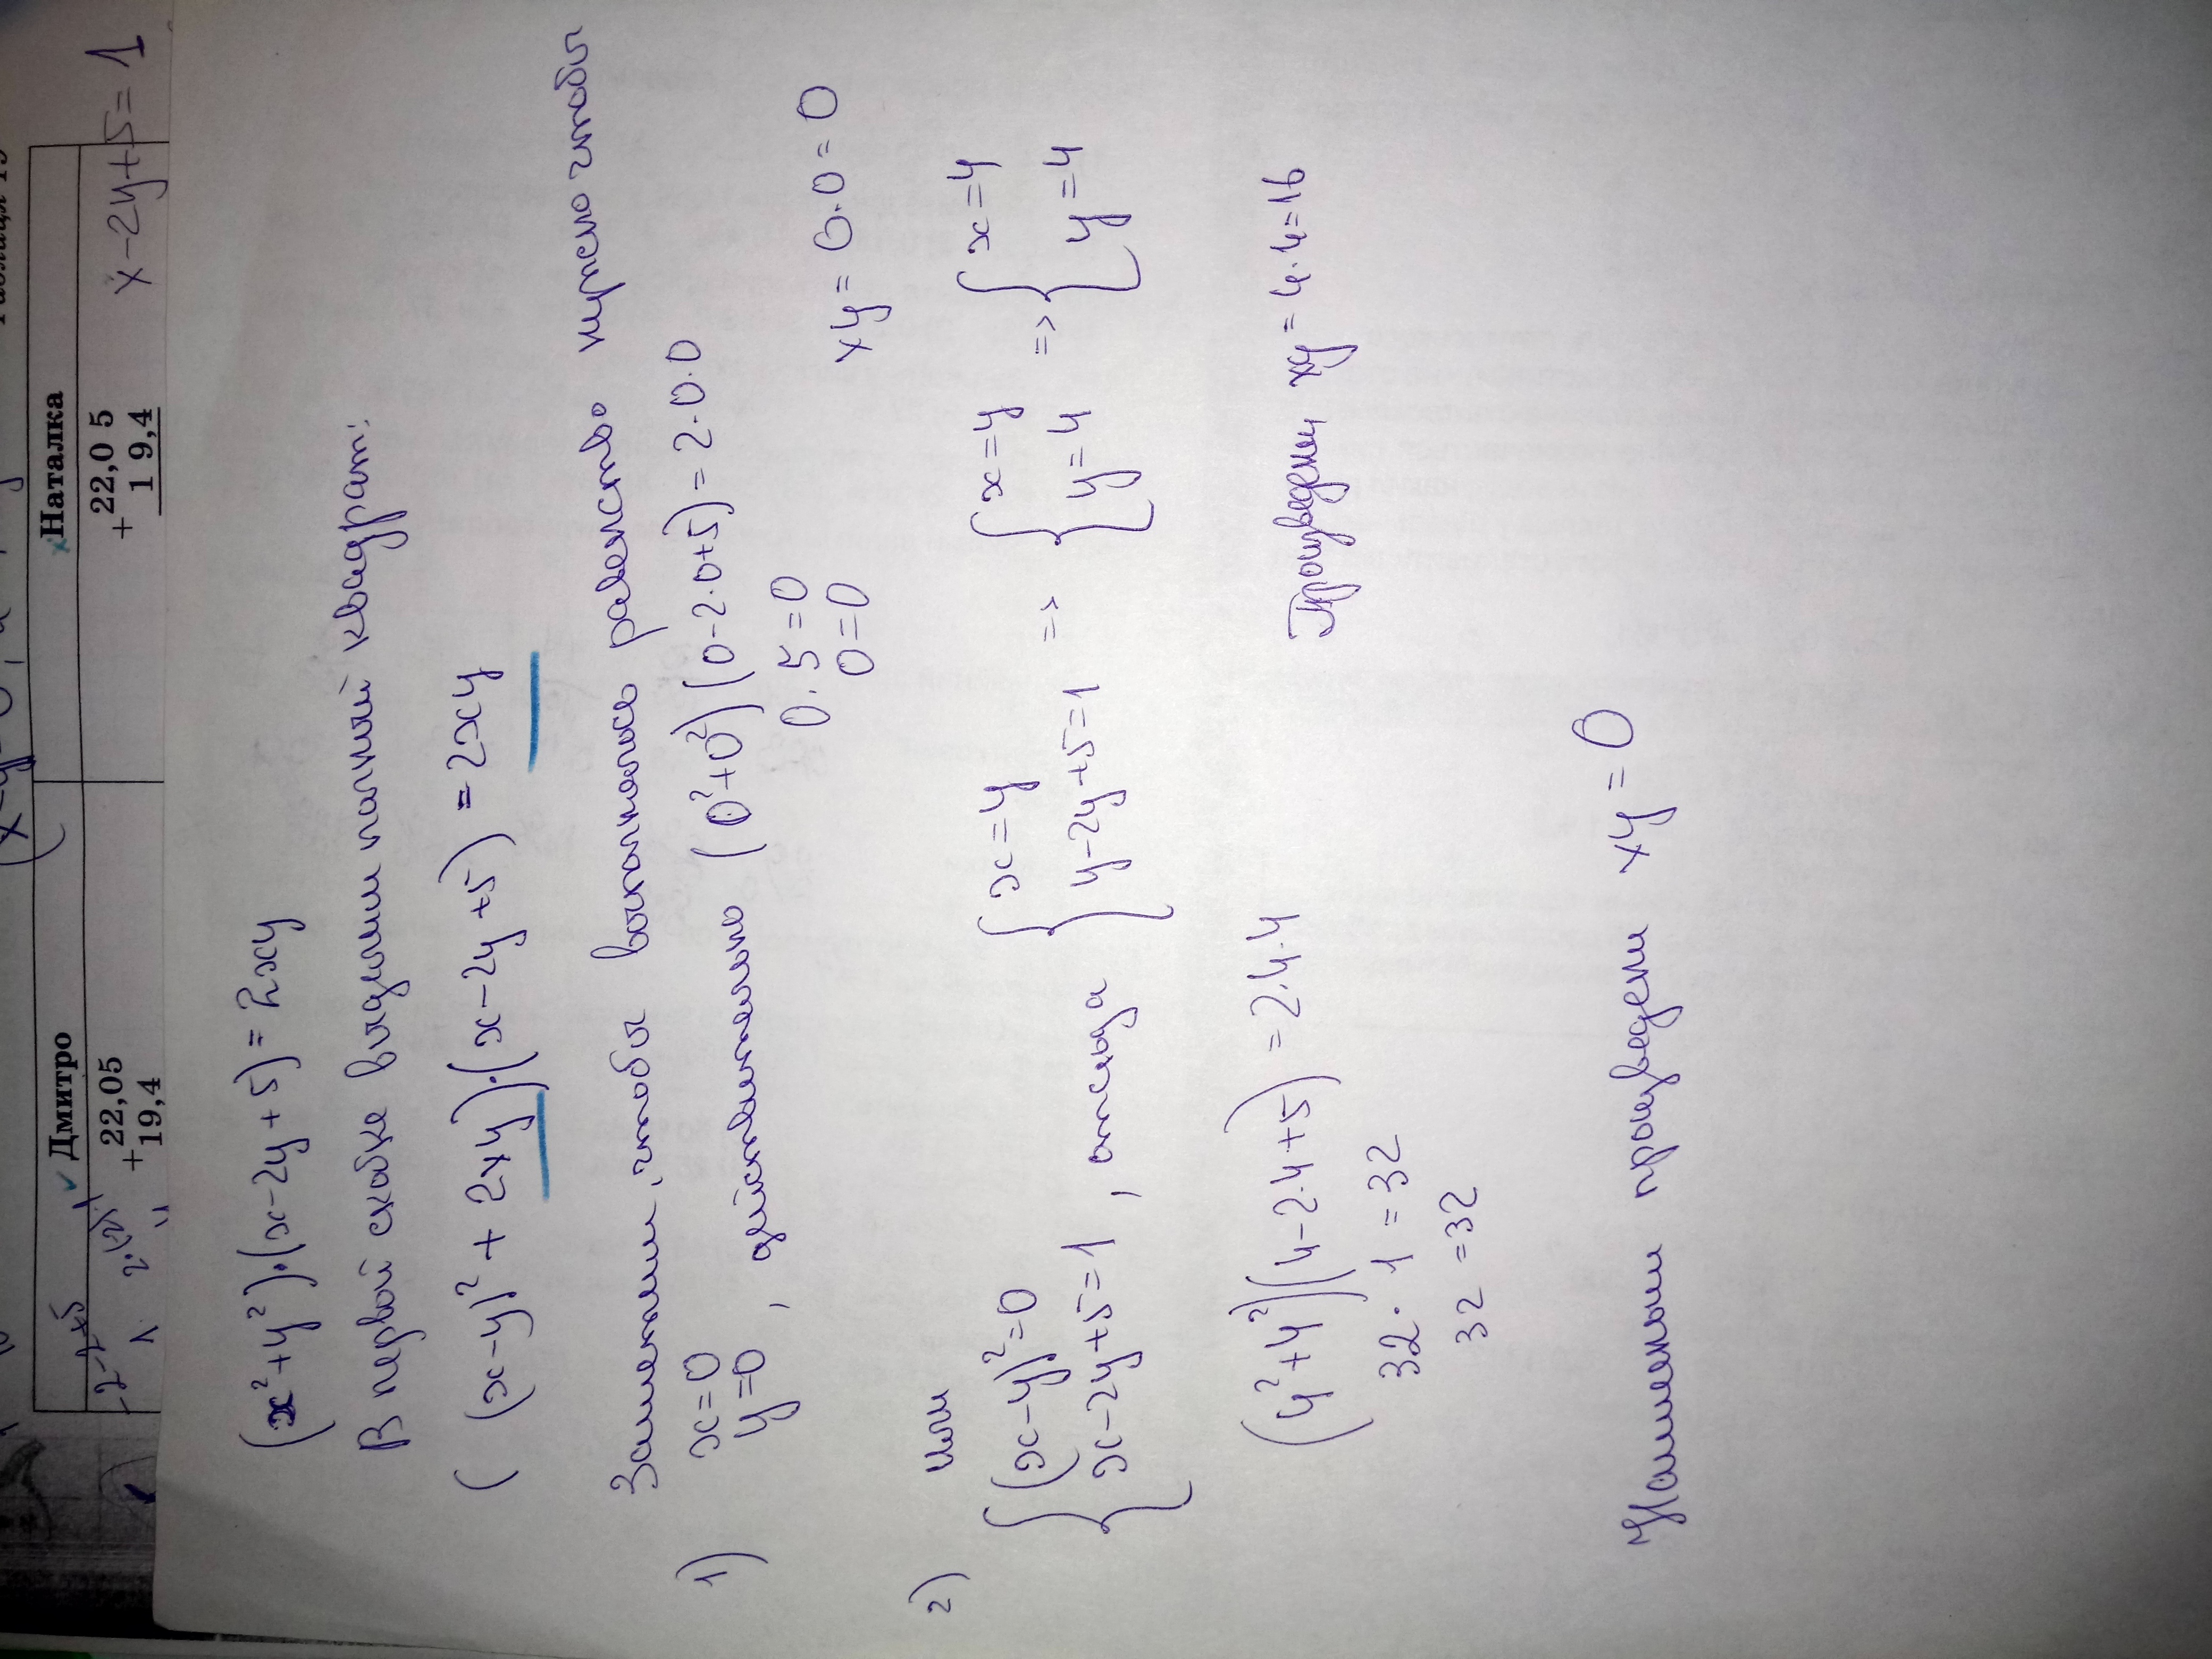 Дмитро
Наталка
+ 22,05
19,4
+ 22,0 5
1 9,4
x-2y+5=1
(x²+y²)·(x-2y+5)=2xy
В первой скобке выделим полный квадрат:
((x-y)²+2xy)·(x-2y+5)=2xy
Заметим, чтобы выполнялось равенство нужно чтобы
1) x=0
y=0, действительно (0²+0²)(0-2·0+5)=2·0·0
0·5=0
0=0
xy=0·0=0
2) или
{(x-y)²=0
x-2y+5=1, отсюда {x=y
y-2y+5=1 => {x=y
y=4 => {x=4
y=4
(4²+4²)(4-2·4+5)=2·4·4
32·1=32
32=32
Произведен xy=4·4=16
Наименьш произведен xy=0